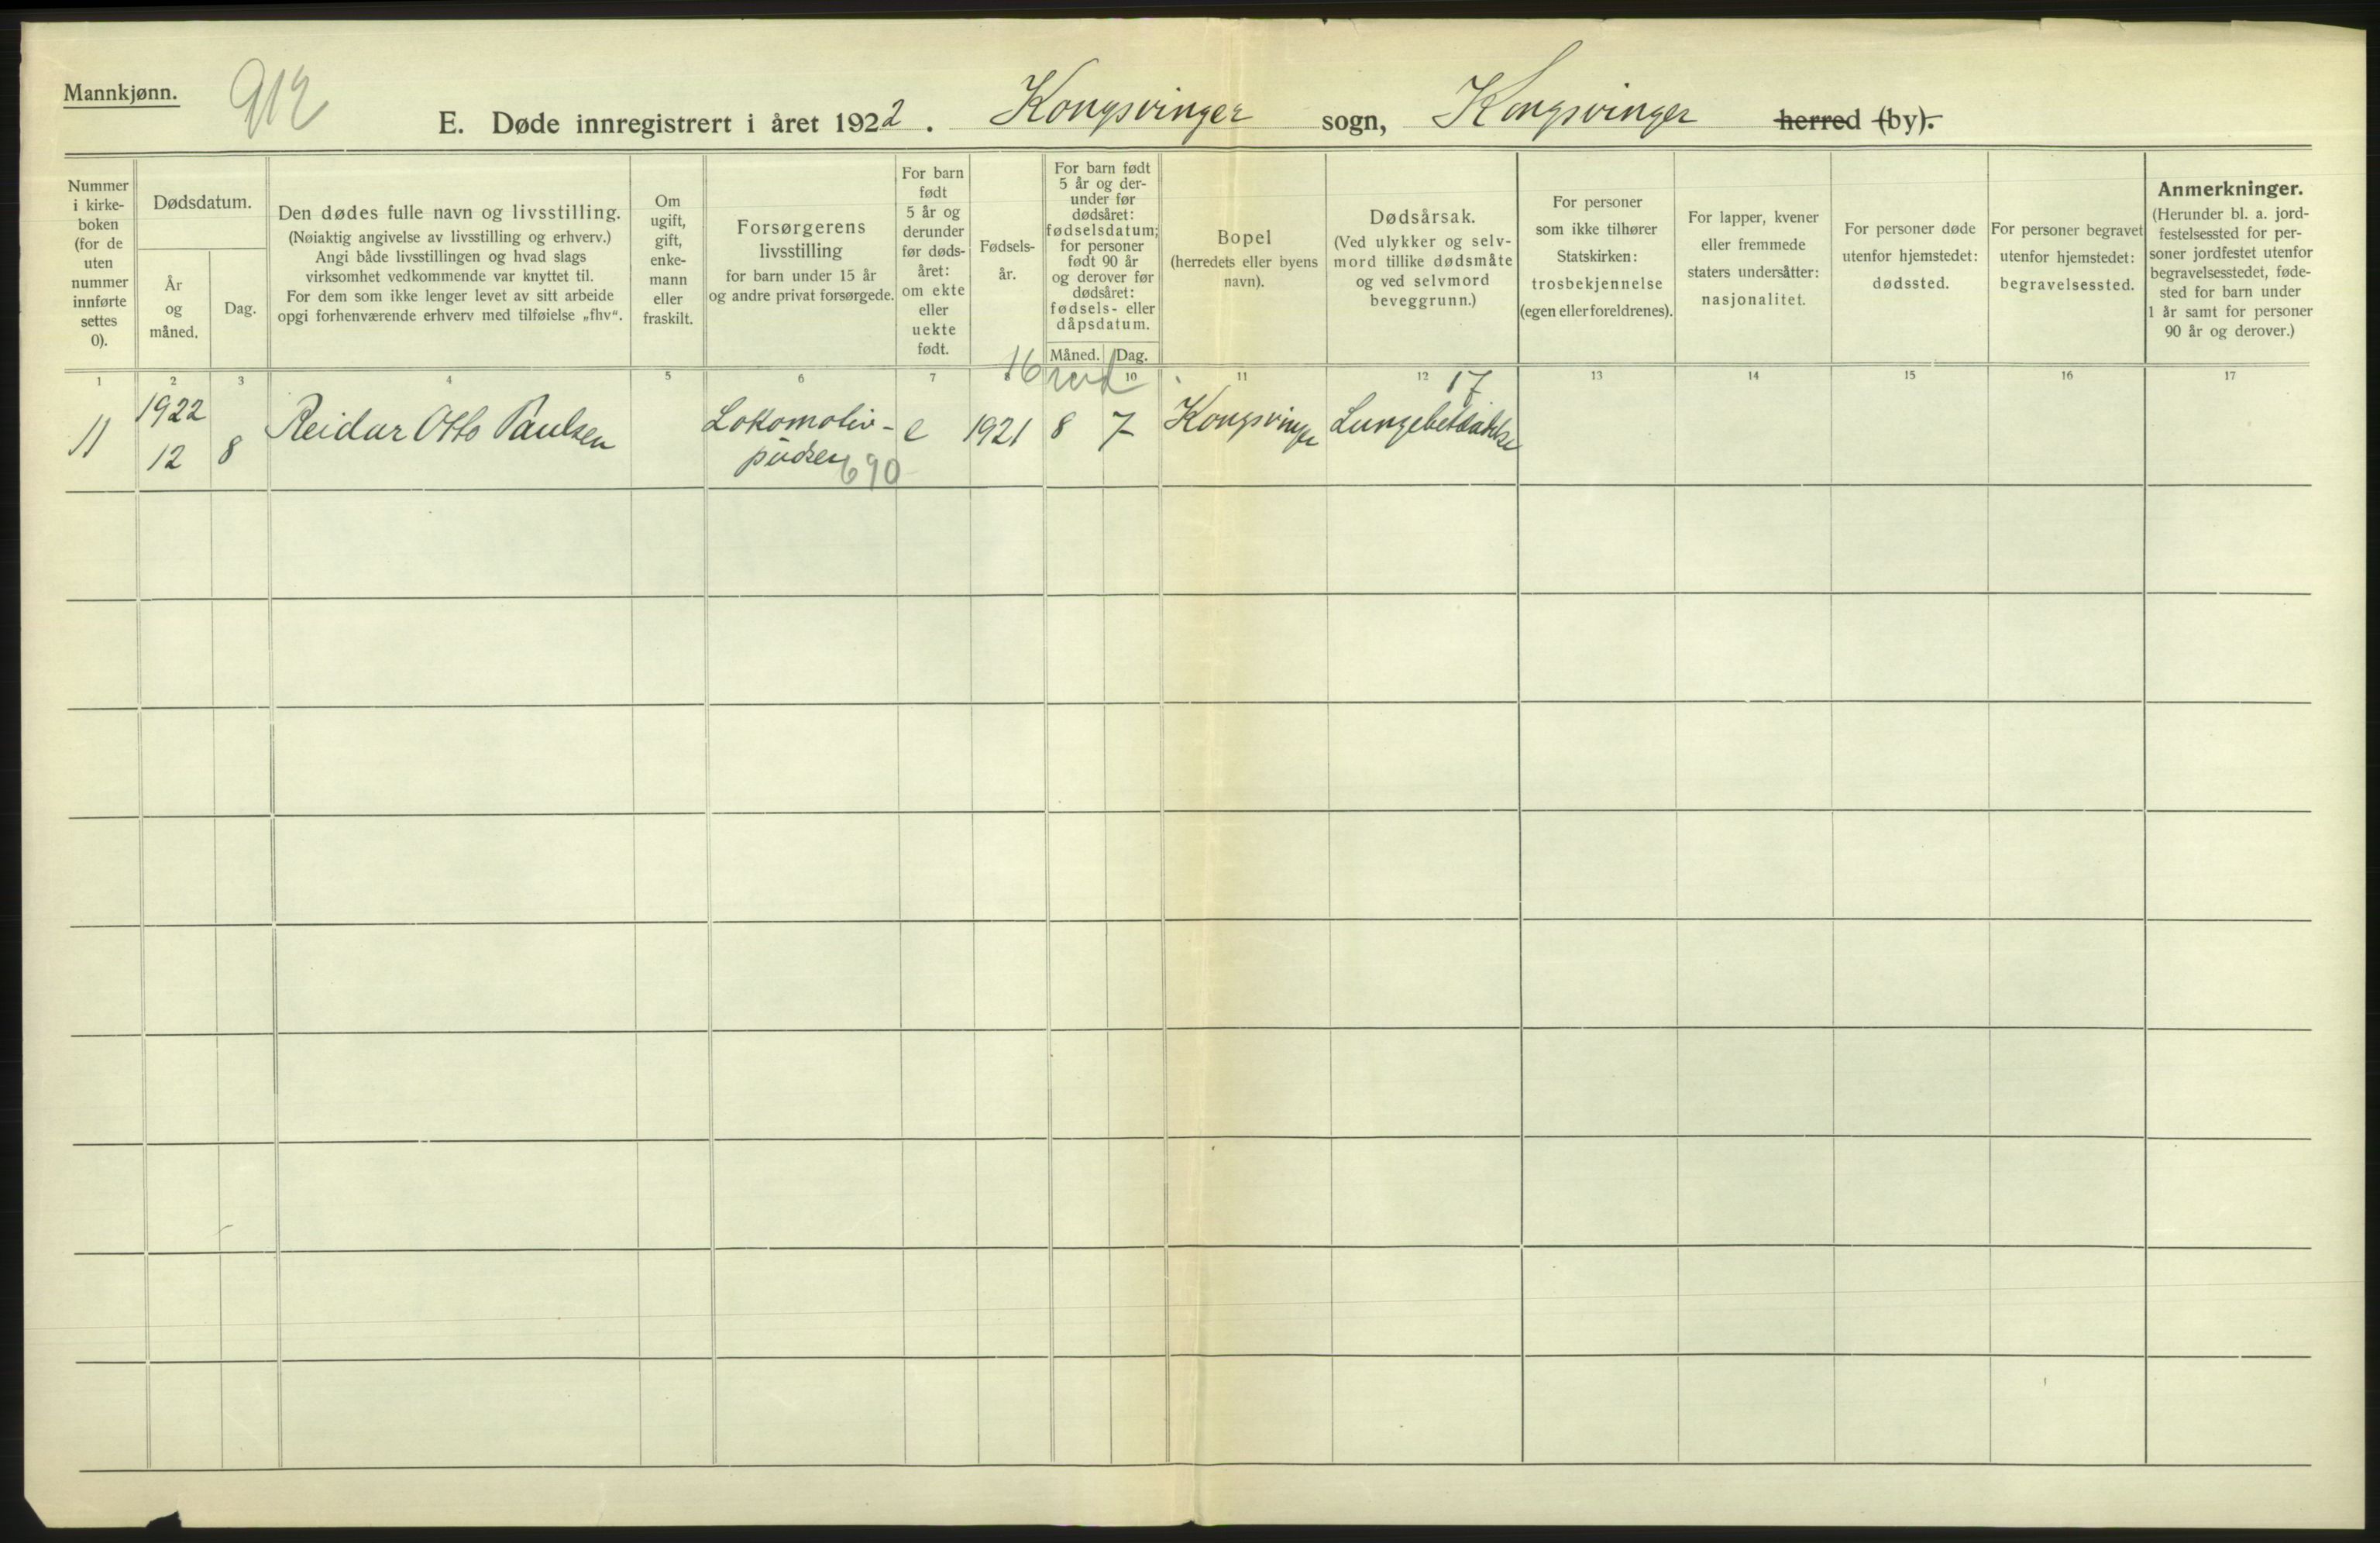 Mannkjønn.
912
E. Døde innregistrert i året 1922. Kongsvinger sogn, Kongsvinger herred (by).
Nummer
i kirke-
boken
(for de
uten
nummer
innførte
settes
0).
Dødsdatum.
År
og
måned.
Dag.
Den dødes fulle navn og livsstilling.
(Nøiaktig angivelse av livsstilling og erhverv.)
Angi både livsstillingen og hvad slags
virksomhet vedkommende var knyttet til.
For dem som ikke lenger levet av sitt arbeide
opgi forhenværende erhverv med tilføielse „fhv“.
Om
ugift,
gift,
enke-
mann
eller
fraskilt.
Forsørgerens
livsstilling
for barn under 15 år
og andre privat forsørgede.
For barn
født
5 år og
derunder
før døds-
året:
om ekte
eller
uekte
født.
Fødsels-
år.
For barn født
5 år og der-
under før
dødsåret:
fødselsdatum;
for personer
født 90 år
og derover før
dødsåret:
fødsels- eller
dåpsdatum.
Måned. Dag.
Bopel
(herredets eller byens
navn).
Dødsårsak.
(Ved ulykker og selv-
mord tillike dødsmåte
og ved selvmord
beveggrunn.)
For personer
som ikke tilhører
Statskirken:
trosbekjennelse
(egen eller foreldrenes).
For lapper, kvener
eller fremmede
staters undersåtter:
nasjonalitet.
For personer døde
utenfor hjemstedet:
dødssted.
For personer begravet
utenfor hjemstedet:
begravelsessted.
Anmerkninger.
(Herunder bl. a. jord-
festelsessted for per-
soner jordfestet utenfor
begravelsesstedet, føde-
sted for barn under
1 år samt for personer
90 år og derover.)
1 2 3 4 5 6 7 10 11 12 13 14 15 16 17
16 md
17
11
1922
12
8
Reidar Otto Paulsen
Lokomotiv-
pudser
690
e
1921
8
7
Kongsvinger
Lungebetændelse